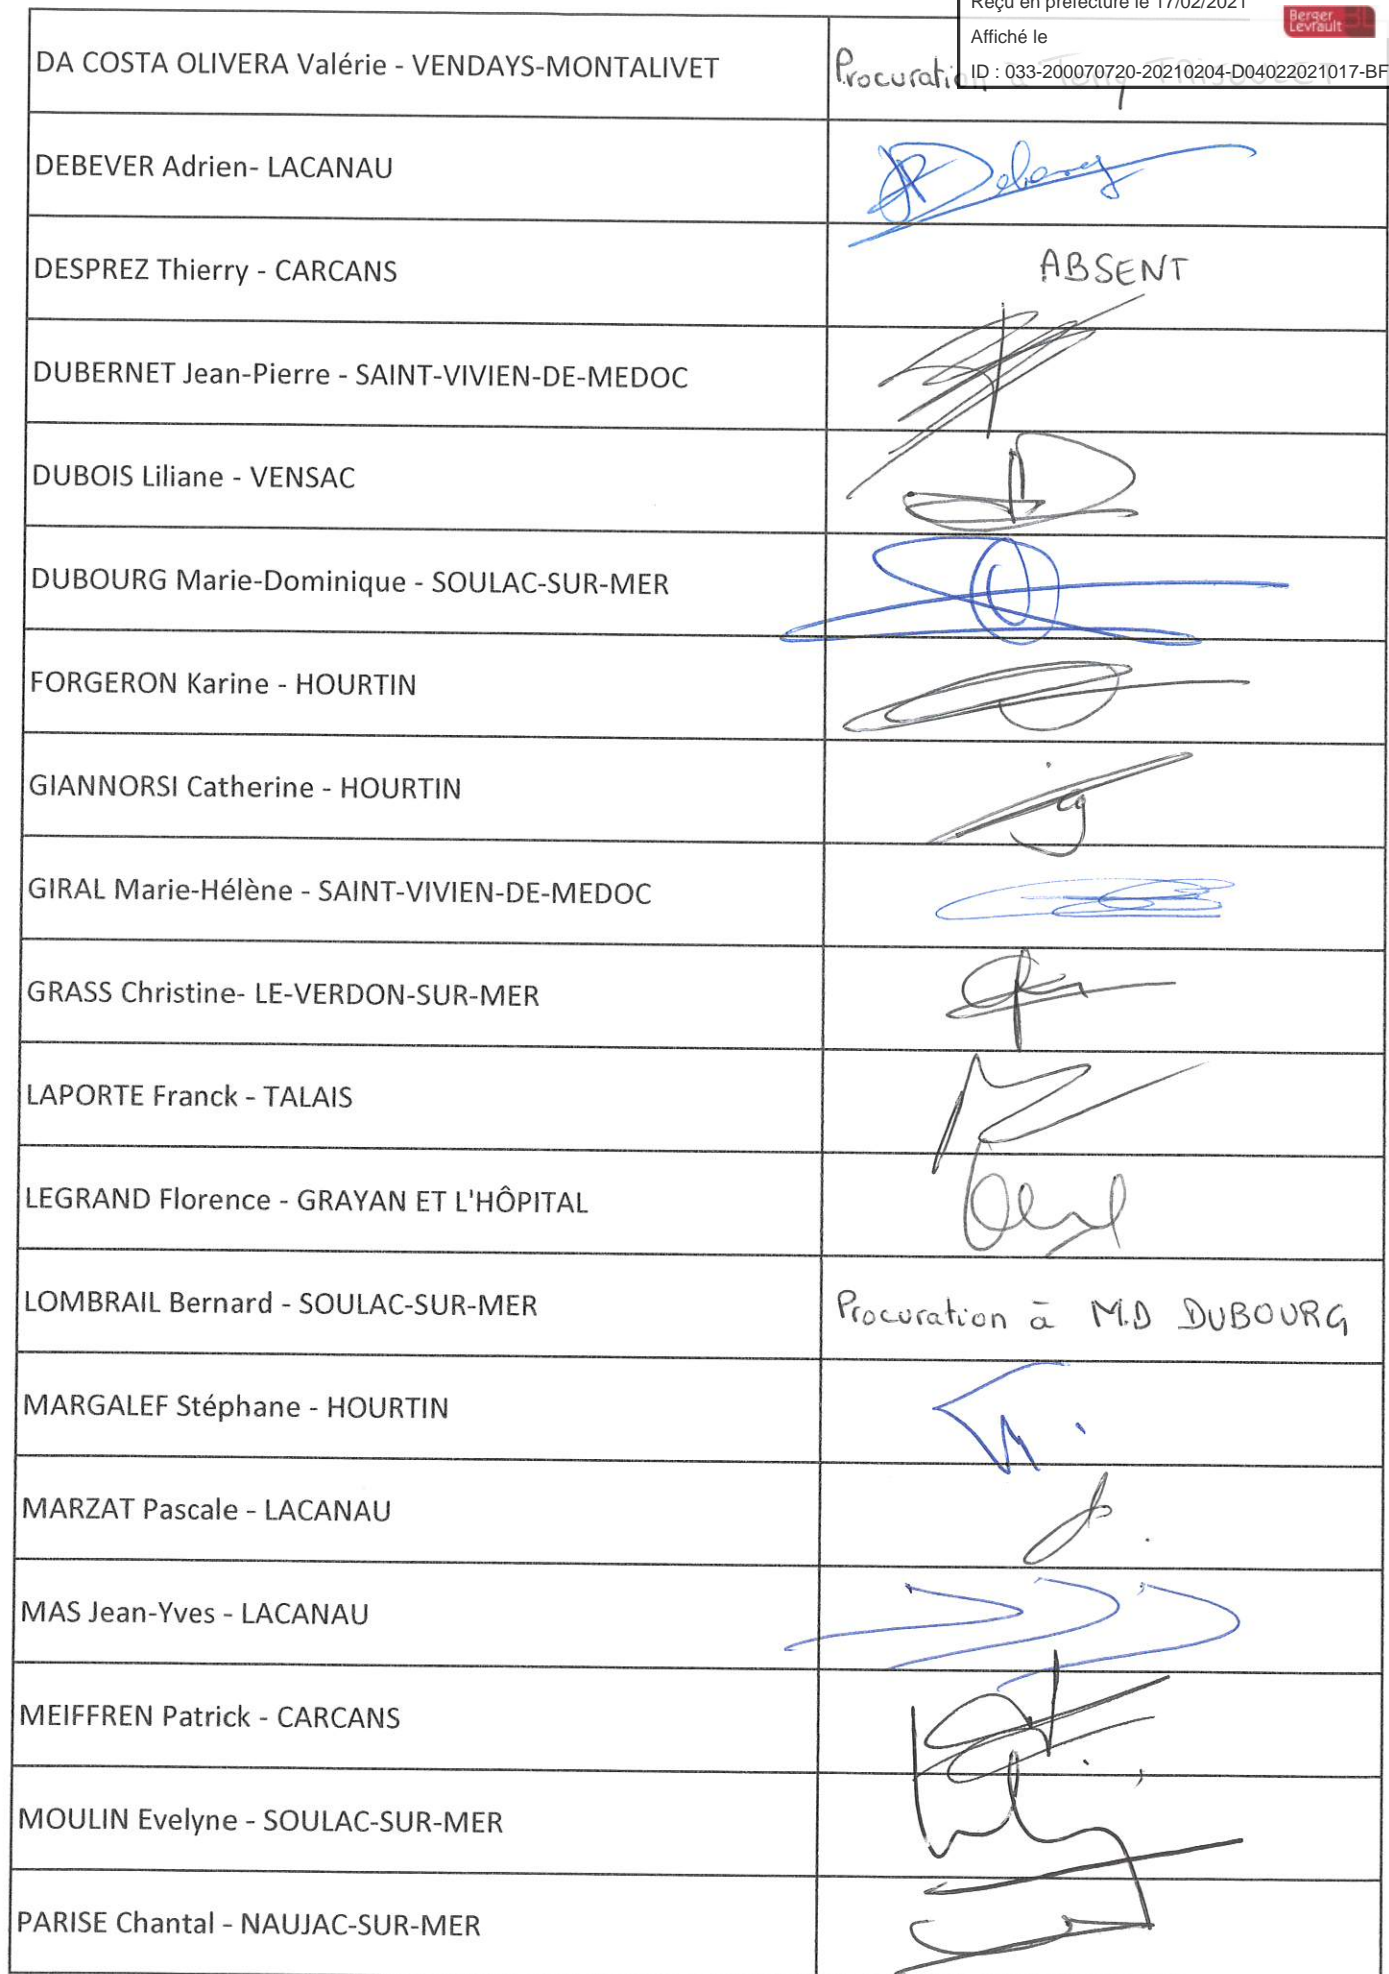 Reçu en préfecture le 17/02/2021
Berger
Levrault
Affiché le
ID : 033-200070720-20210204-D04022021017-BF
DA COSTA OLIVERA Valérie - VENDAYS-MONTALIVET
Procuration à Tony TRIJOULET
DEBEVER Adrien- LACANAU
Debever
DESPREZ Thierry - CARCANS
ABSENT
DUBERNET Jean-Pierre - SAINT-VIVIEN-DE-MEDOC
DUBOIS Liliane - VENSAC
DUBOURG Marie-Dominique - SOULAC-SUR-MER
FORGERON Karine - HOURTIN
GIANNORSI Catherine - HOURTIN
GIRAL Marie-Hélène - SAINT-VIVIEN-DE-MEDOC
GRASS Christine- LE-VERDON-SUR-MER
LAPORTE Franck - TALAIS
LEGRAND Florence - GRAYAN ET L'HÔPITAL
LOMBRAIL Bernard - SOULAC-SUR-MER
Procuration à M.D DUBOURG
MARGALEF Stéphane - HOURTIN
MARZAT Pascale - LACANAU
MAS Jean-Yves - LACANAU
MEIFFREN Patrick - CARCANS
MOULIN Evelyne - SOULAC-SUR-MER
PARISE Chantal - NAUJAC-SUR-MER